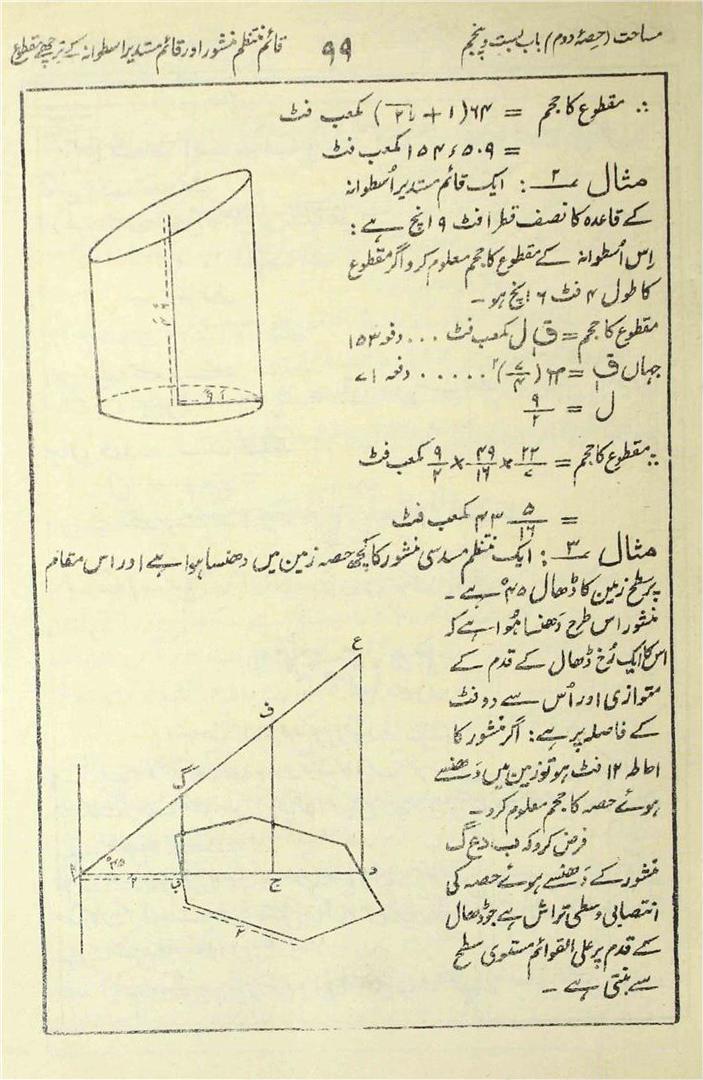 مساحت (حِصّۂ دوم) باب بست و پنجم
۹۹
قائم منتظم منشور اور قائم مستدیر اسطوانہ کے ترچھے مقطوع
∴ مقطوع کا حجم = ۶۴(۱ + √۲) کمعب فٹ
= ۱۵۴٫۵۰۹ کمعب فٹ
مثال ۲ : ایک قائم مستدیر اُسطوانہ
کے قاعدہ کا نصف قطر ا فٹ ۹ انچ ہے :
اِس اُسطوانہ کے مقطوع کا حجم معلوم کرو اگر مقطوع
کا طول ۴ فٹ ۶ انچ ہو ۔
مقطوع کا حجم = ق ل کمعب فٹ ... دفعہ ۱۵۳
جہاں ق = π(۷/۴)۲ ..... دفعہ ۷۱
ل = ۹/۲
∴ مقطوع کا حجم = ۲۲/۷ × ۴۹/۱۶ × ۹/۲ کمعب فٹ
= ۴۳ ۵/۱۶ کمعب فٹ
مثال ۳ : ایک منتظم مسدسی منشور کا کچھ حصہ زمین میں دھنسا ہوا ہے اور اس مقام
پر سطح زمین کا ڈھال ۴۵° ہے ۔
منشور اس طرح دَھنسا ہُوا ہے کہ
اس کا ایک رُخ ڈھال کے قدم کے
متوازی اور اُس سے دو فٹ
کے فاصلہ پر ہے : اگر منشور کا
احاطہ ۱۲ فٹ ہو تو زمین میں دَھنسے
ہوئے حصہ کا حجم معلوم کرو ۔
فرض کرو کہ ب د ع گ
منشور کے دَھنسے ہوئے حصہ کی
انتصابی وسطی تراش ہے جو ڈھال
کے قدم پر علی القوائم مستوی سطح
سے بنتی ہے ۔
ع
ف
گ
۴۵°
۲
ب
ج
د
۲